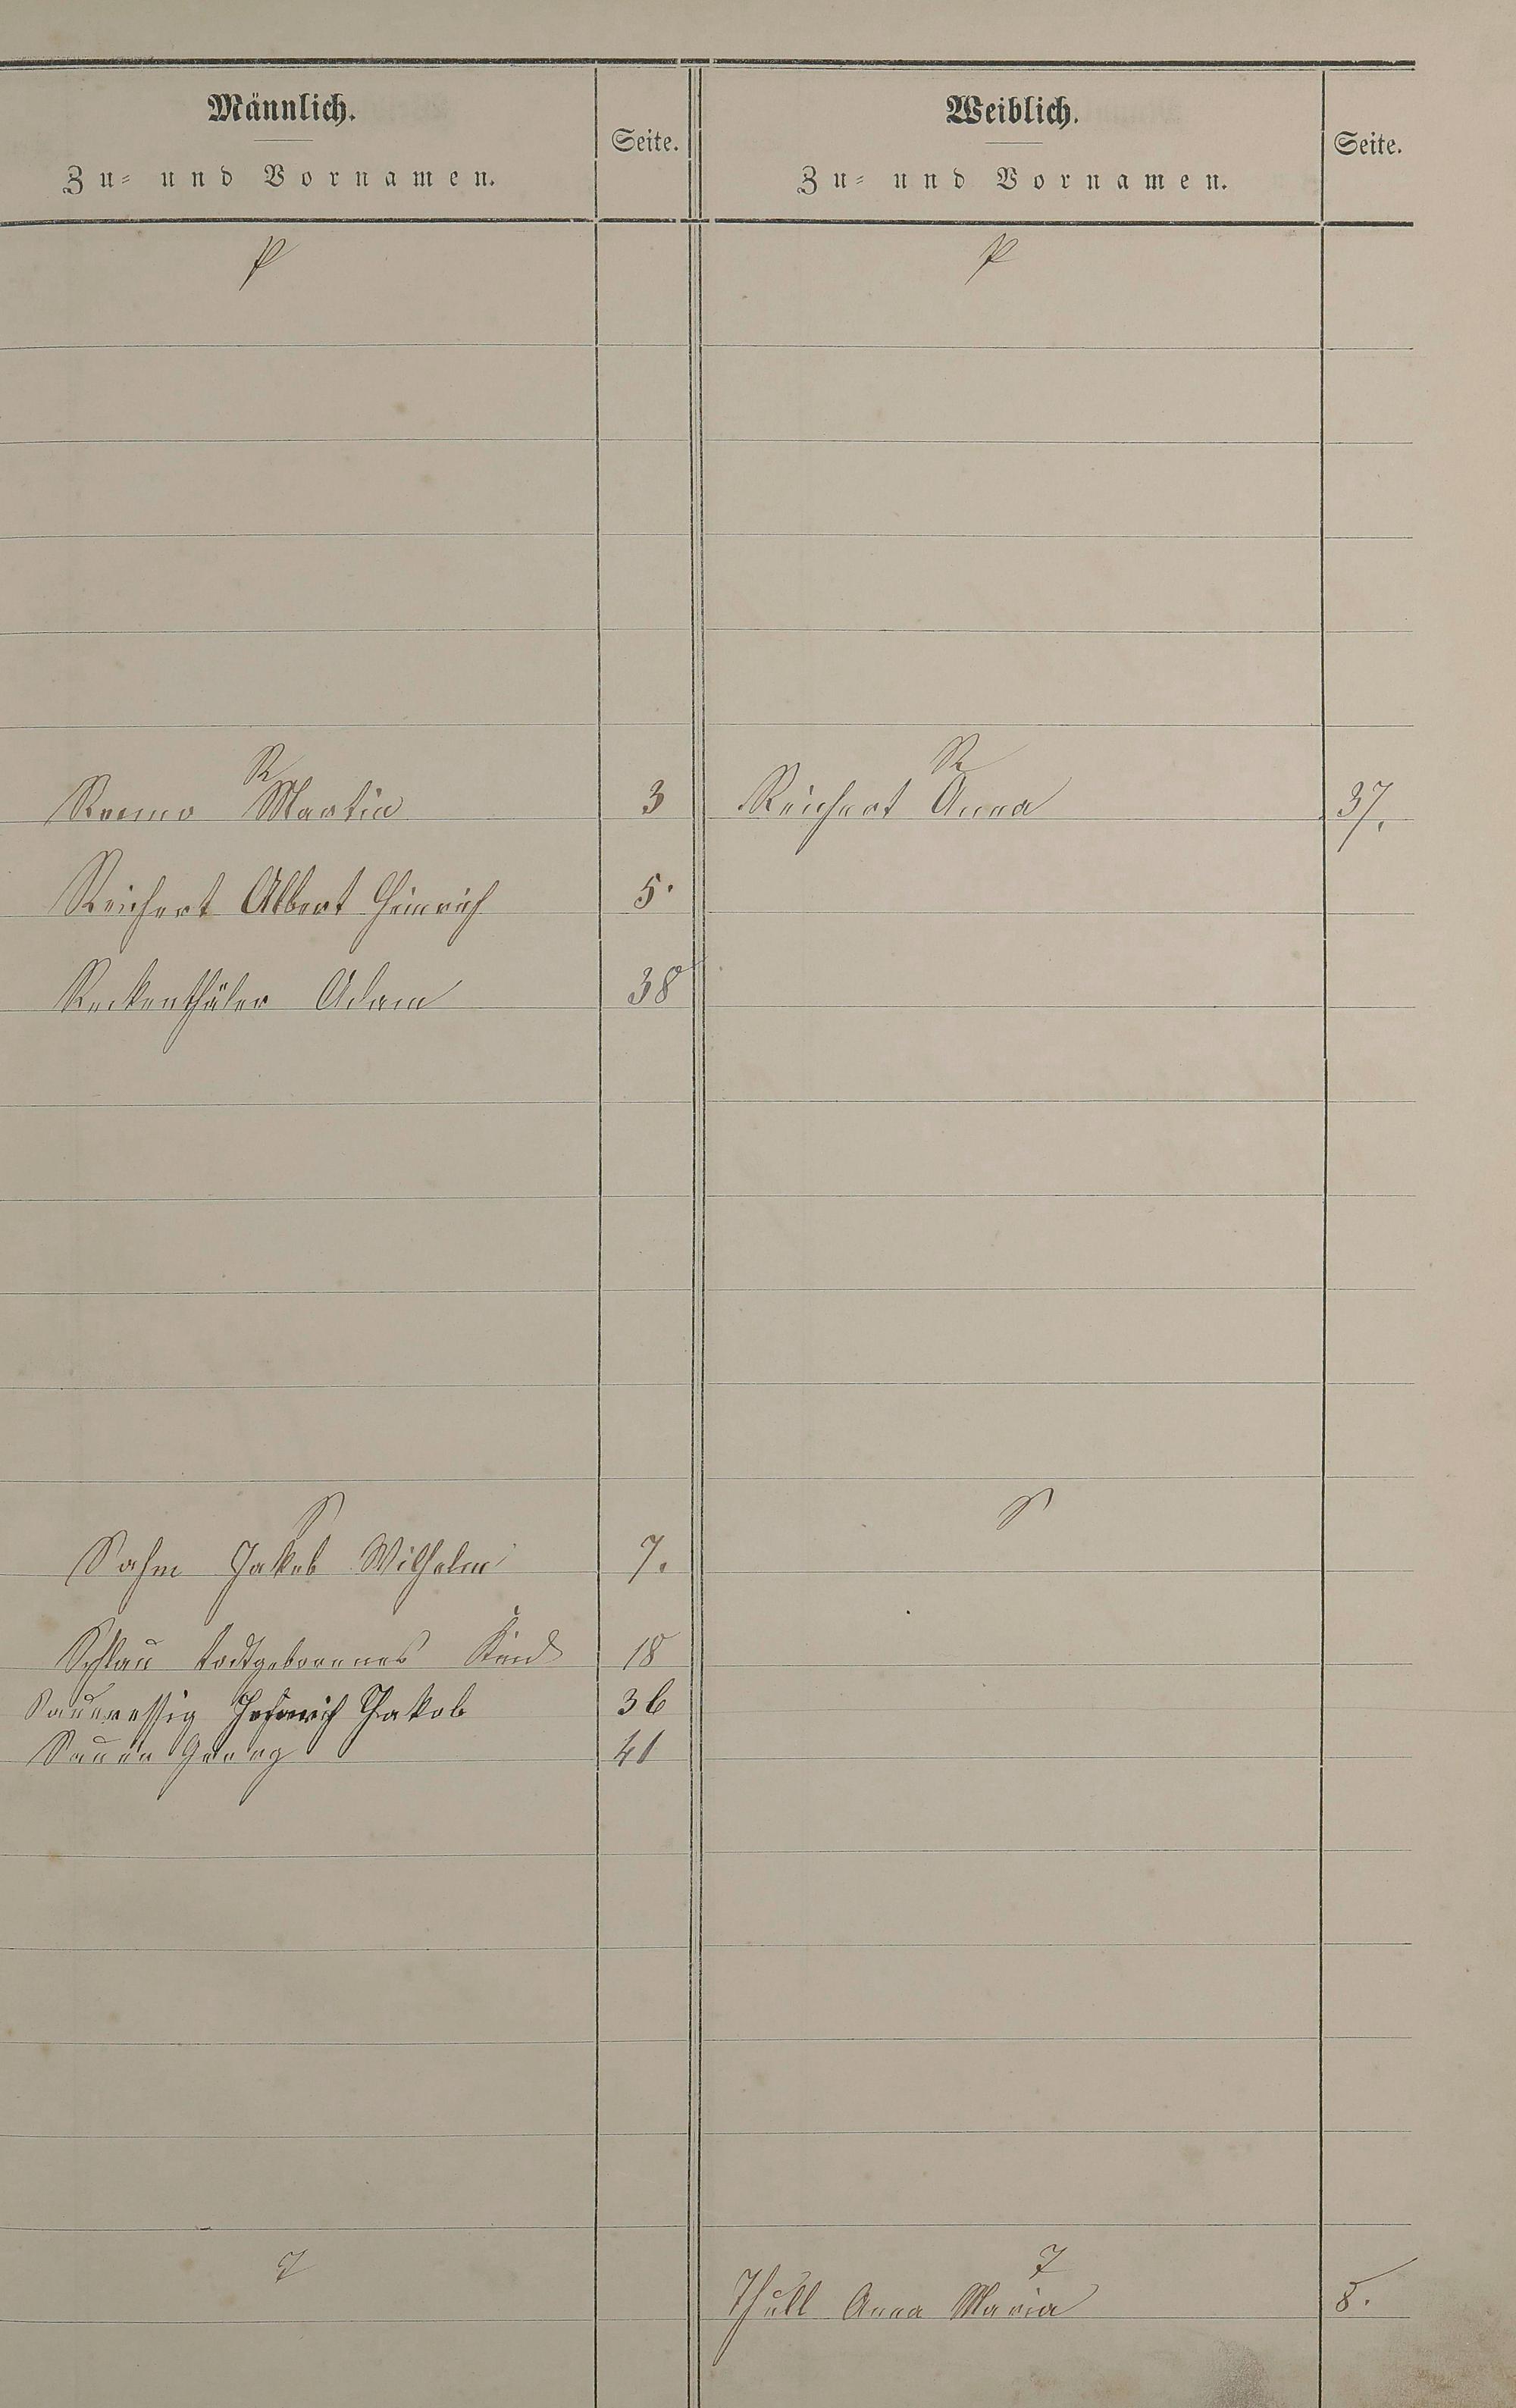 Männlich.
Zu- und Vornamen.
Seite.
Weiblich.
Zu- und Vornamen.
Seite.
P
P
R
R
Martin 3
Reichert Anna 37.
Reichert Albert Heinrich 5.
Reckenthäler Adam 38
S
S
Sahm Jakob Wilhelm 7.
Schlau todtgeborenes Kind 18
Saueressig Jakob 36
Sauer Georg 41
T
T
Thull Anna Maria 8.